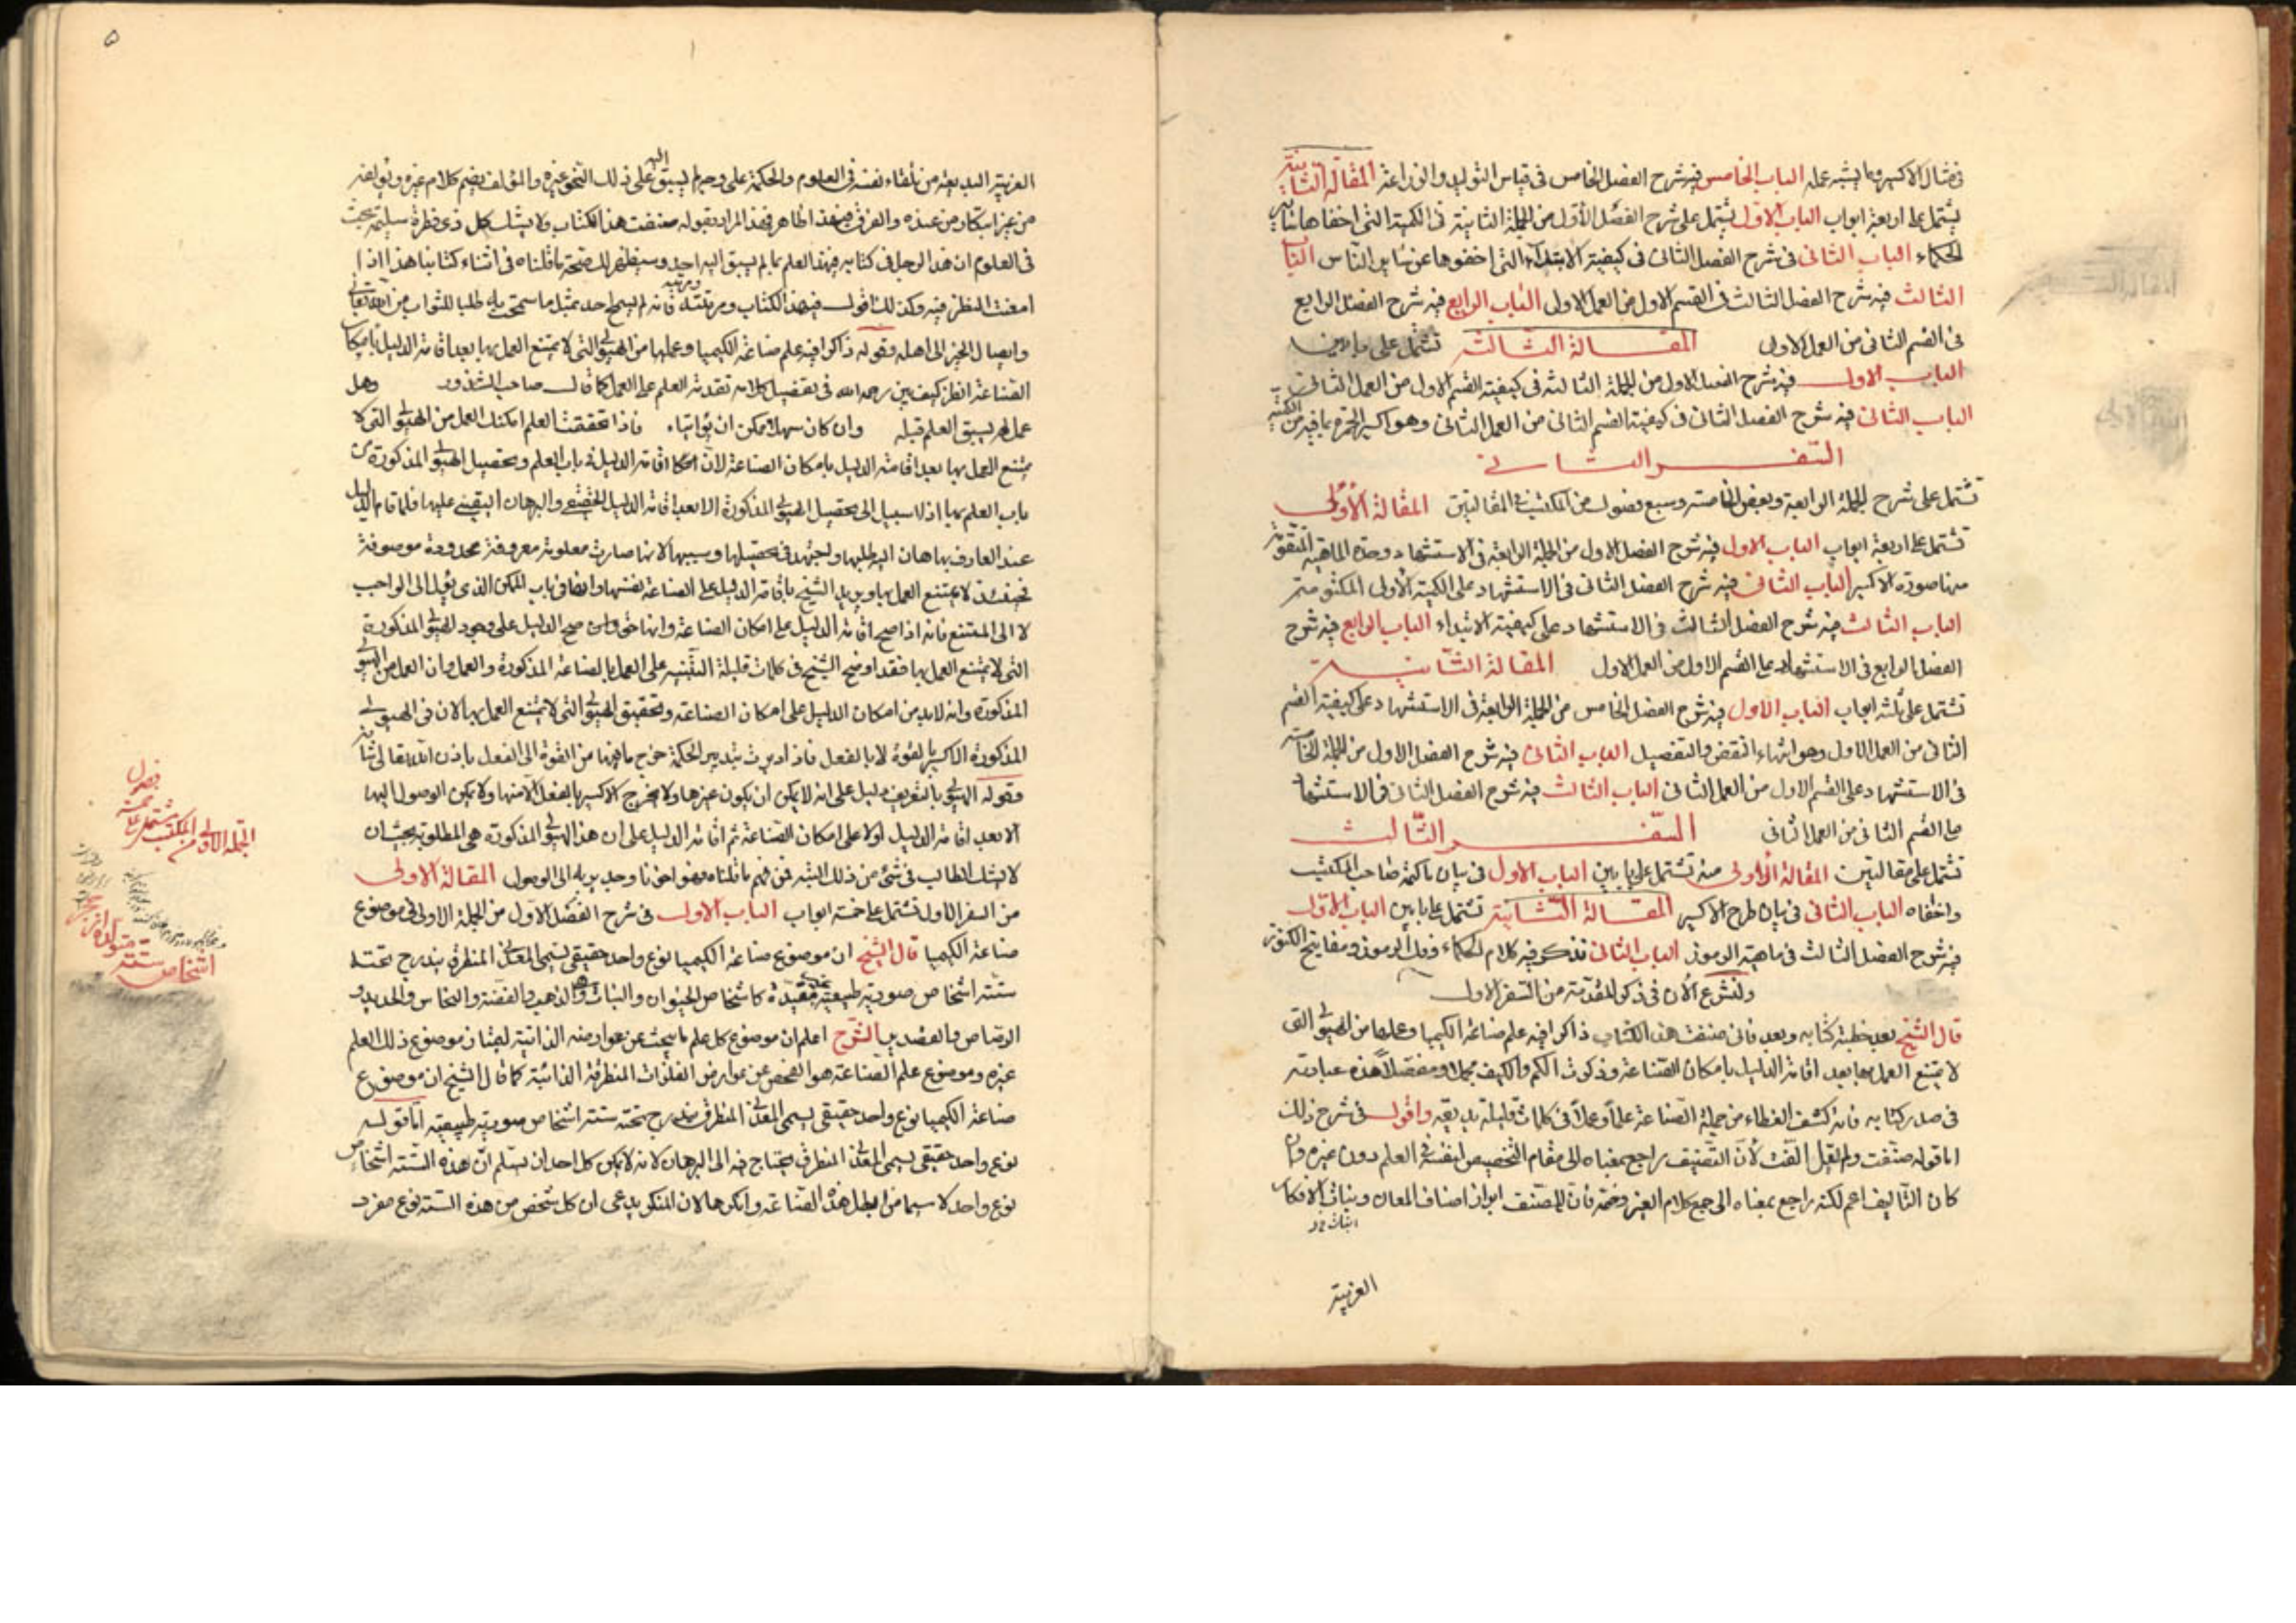 فى مثال الاكسير وما يشبه عمله الباب الخامس فيه شرح الفصل الخامس فى قياس التوليد والزراعة المقالة الثانية
يشتمل على اربعة ابواب الباب الاول يشتمل على شرح الفصل الاول من الجملة الثانية فى الكمية التى اخفاها سائر
الحكماء الباب الثانى فى شرح الفصل الثانى فى كيفية الابتداء التى اخفوها عن سائر الناس الباب
الثالث فيه شرح الفصل الثالث فى القسم الاول من العمل الاول الباب الرابع فيه شرح الفصل الرابع
فى القسم الثانى من العمل الاول المقالة الثالثة تشتمل على بابين
الباب الاول فيه شرح الفصل الاول من الجملة الثالثة فى كيفية القسم الاول من العمل الثانى
الباب الثانى فيه شرح الفصل الثانى فى كيفية القسم الثانى من العمل الثانى وهو اكسير الحمرة بما فيه من الكمية
السفر الثانى
تشتمل على شرح الجملة الرابعة وبعض الخامسة وسبع فصول من المكتسب فى المقالتين المقالة الاولى
تشتمل على اربعة ابواب الباب الاول فيه شرح الفصل الاول من الجملة الرابعة فى الاستشهاد وحدة الماهية المتقوم
منها صورة الاكسير الباب الثانى فيه شرح الفصل الثانى فى الاستشهاد على الكمية الاولى المكتومة
الباب الثالث فيه شرح الفصل الثالث فى الاستشهاد على كيفية الابتداء الباب الرابع فيه شرح
الفصل الرابع فى الاستشهاد على القسم الاول من العمل الاول المقالة الثانية
تشتمل على ثلثة ابواب الباب الاول فيه شرح الفصل الخامس من الجملة الرابعة فى الاستشهاد على كيفية القسم
الثانى من العمل الاول وهو انهاء النقض والتفصيل الباب الثانى فيه شرح الفصل الاول من الجملة الخامسة
فى الاستشهاد على القسم الاول من العمل الثانى الباب الثالث فيه شرح الفصل الثانى فى الاستشهاد
على القسم الثانى من العمل الثانى السفر الثالث
تشتمل على مقالتين المقالة الاولى منه تشتمل على بابين الباب الاول فى بيان ما كتمه صاحب المكتسب
واخفاه الباب الثانى فى بيان طرح الاكسير المقالة الثانية تشتمل على بابين الباب الاول
فيه شرح الفصل الثالث فى ماهية الرموز الباب الثانى نذكر فيه كلام الحكماء وفك الرموز ومفاتيح الكنوز
ولنشرع الآن فى ذكر المقدمة من السفر الاول
قال الشيخ بعد خطبة كتابه وبعد فانى صنفت هذا الكتاب ذاكرا فيه علم صناعة الكيميا وعملها من الهيولى التى
لا يمتنع العمل بها بعد اقامة الدليل بامكان الصناعة وذكرت الكم والكيف مجملا ومفصلا هذه عبارته
فى صدر كتابه فانه كشف الغطاء من جملة الصناعة علما وعملا فى كلمات قليلة بديعة واقول فى شرح ذلك
اما قوله صنفت ولم يقل الفت لأن التصنيف راجع بمعناه الى مقام التخصيص لنفسه فى العلم دون غيره وان
كان التأليف اعم لكنه راجع بمعناه الى جمع كلام الغير وضمه فان المصنف ابراز اصناف المعان وبنات الافكار
الغريبة
٥
الغريبة البديعة من تلقاء نفسه فى العلوم والحكمة على وجه لم يسبق اليه على ذلك النحو غيره والمؤلف يضم كلام غيره ويؤلفه
من غير ابتكار من عنده والفرق بين هذا ظاهر فهذا المراد بقوله صنفت هذا الكتاب ولا يشك كل ذى فطرة سليمة يبحث
فى العلوم ان هذا الرجل فى كتابه فهذا العلم بما لم يسبق اليه احد وسيظهر لك صحة ما قلناه فى اثناء كتابنا هذا اذا
امعنت النظر فيه وكذلك اقول فى هذا الكتاب ومرتبته فانه لم يسمح احد بمثل ما سمحت به طلبا للثواب من الله تعالى
وايصال الخير الى اهله وقوله ذاكرا فيه علم صناعة الكيميا وعملها من الهيولى التى لا يمتنع العمل بها بعد اقامة الدليل بامكان
الصناعة انظر كيف بين رحمه الله فى تفضيل كلامه تقدمة العلم على العمل كما قال صاحب الشذور وهل
عمل لم يسبق العلم قبله وان كان سهلا ممكن ان يؤاتيا فاذا تحققت العلم امكنك العمل من الهيولى التى لا
يمتنع العمل بها بعد اقامة الدليل بامكان الصناعة لان امكان اقامة الدليل فى باب العلم وتحصيل الهيولى المذكورة من
باب العلم بها اذ لا سبيل الى تحصيل الهيولى المذكورة الا بعد اقامة الدليل الحقيقى والبرهان اليقينى عليها فلما قام الدليل
عند العارف بها هان اليه طلبها ويجتهد فى تحصيلها وسببها لانها صارت معلومة معروفة محدودة موصوفة
فحينئذ لا يمتنع العمل بها ويريد الشيخ باقامة الدليل على الصناعة نفسها وانها فى باب الممكن الذى يؤل الى الواجب
لا الى الممتنع فانه اذا صح اقامة الدليل على امكان الصناعة وانها حق وان صح الدليل على وجود الهيولى المذكورة
التى لا يمتنع العمل بها فقد اوضح الشيخ فى كلمات قليلة التنبيه على العمل بالصناعة المذكورة والعمل وان العمل من الهيولى
المذكورة وانه لا بد من امكان الدليل على امكان الصناعة وتحقيق الهيولى التى لا يمتنع العمل بها لان فى الهيولى
المذكورة الاكسير بالقوة لا بالفعل فاذا دبرت بتدبير الحكمة خرج ما فيها من القوة الى الفعل باذن الله تعالى
وقوله الهيولى بالتعريف دليل على انه لا يمكن ان يكون غيرها ولا يخرج الاكسير بالفعل الا منها ولا يمكن الوصول اليها
الا بعد اقامة الدليل اولا على امكان الصناعة ثم اقامة الدليل على ان هذا الهيولى المذكورة هى المطلوبة بحيث ان
لا يشك الطالب فى شئ من ذلك البتة فمن فهم ما قلناه فهو اخونا وجدير به الى الوصول المقالة الاولى
من السفر الاول تشتمل على خمسة ابواب الباب الاول فى شرح الفصل الاول من الجملة الاولى فى موضوع
صناعة الكيميا قال الشيخ ان موضوع صناعة الكيميا نوع واحد حقيقى يسمى المعدنى المنطرق يندرج تحته
ستة اشخاص صورية طبيعية مقيدة كاشخاص الحيوان والنبات وهى الذهب والفضة والنحاس والحديد و
الرصاص والقصدير الشرح اعلم ان موضوع كل علم ما يبحث عن عوارضه الذاتية لبيان موضوع ذلك العلم
غيره وموضوع علم الصناعة هو الفحص عن عوارض الفلزات المنطرقة الذائبة كما قال الشيخ ان موضوع
صناعة الكيميا نوع واحد حقيقى يسمى المعدنى المنطرق يندرج تحته ستة اشخاص صورية طبيعية اما قوله
نوع واحد حقيقى يسمى المعدنى المنطرق يحتاج فيه الى البرهان لانه لا يمكن كل احد ان يسلم ان هذه الستة اشخاص
نوع واحد لا سيما من ابطل هذه الصناعة وانكرها لان المنكر يدعى ان كل شخص من هذه الستة نوع مفرد
الجملة الاولى من المكتسب يشتمل على خمسة فصول